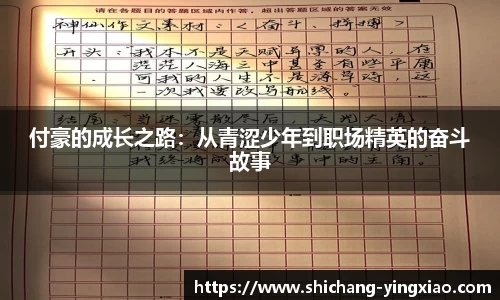 请在各题目的答题区域内作答,超出答题区域的答案无效
神仙作文素材:<奋斗、拼搏>
开头:"我本不是天赋异禀的人,在
茫茫人海三中甚至有些平庸
可我的人生不是练草稿,这
一次我要改写航线。"
结尾:
付豪的成长之路:从青涩少年到职场精英的奋斗
故事
我终将 事中的主角。"
https://www.shichang-yingxiao.com